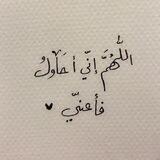 اللَّهُمَّ إنّي أحاولُ
فأعنّي